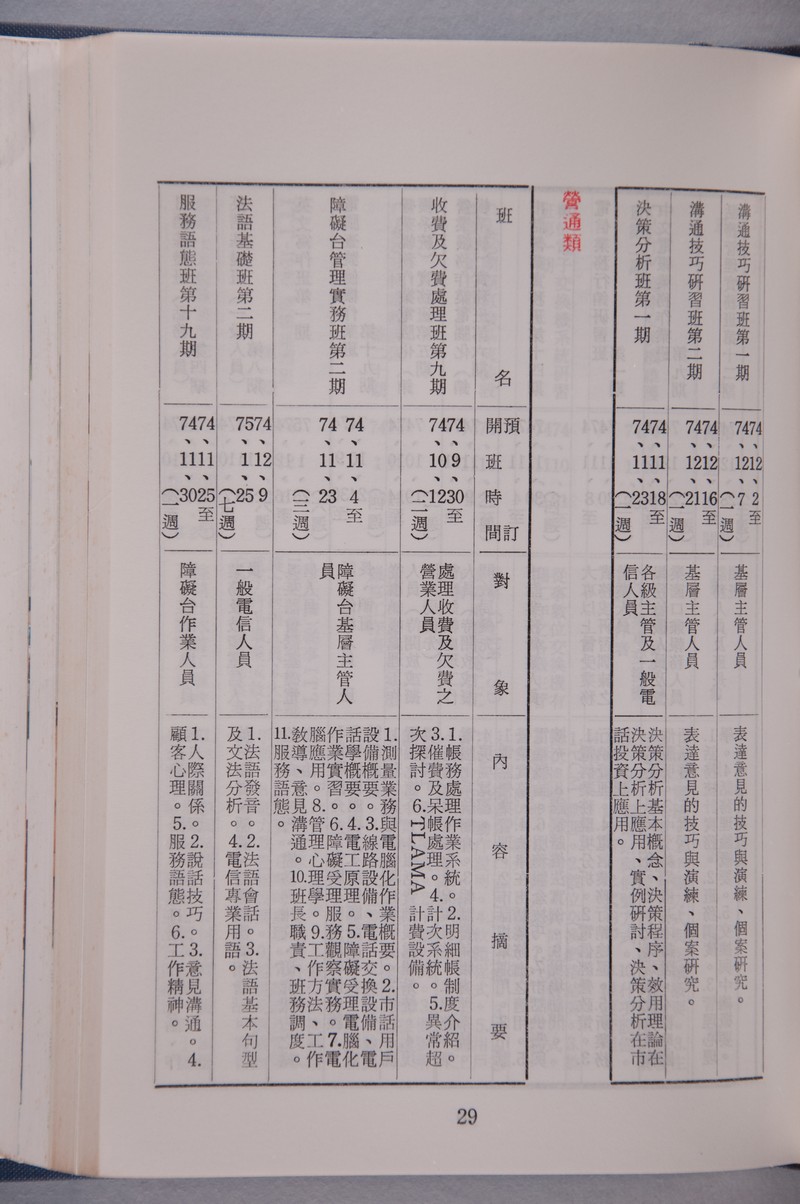 溝通技巧研習班第一期
74、12、2至
74、12、7(一週)
基層主管人員
表達意見的技巧與演練、個案研究。
溝通技巧研習班第二期
74、12、16至
74、12、21(一週)
基層主管人員
表達意見的技巧與演練、個案研究。
決策分析班第一期
74、11、18至
74、11、23(一週)
各級主管及一般電
信人員
決策分析基本概念、決策程序、效用理論在
決策分析上應用、實例研討、決策分析在市
話投資上應用。
營通類
班名
預訂
開班時間
對象
內容摘要
收費及欠費處理班第九期
74、9、30至
74、10、12(二週)
處理收費及欠費之
營業人員
1.帳務處理作業系統。2.明細帳制度介紹。
3.催費及呆帳處理。4.計次系統。5.異常超
次探討。6.TLAMA計費設備。
障礙台管理實務班第二期
74、11、4至
74、11、23(三週)
障礙台基層主管人
員
1.測量業務與電腦化作業概要。2.市話用戶
設備概要。3.線路設備、電話交換設備、電
話學概要。4.電工原理。5.障礙受理電腦化
作業實習。6.障礙受理服務觀察實務。7.電
腦應用。8.管理心理學。9.工作方法、工作
教導、意見溝通。10.班長職責、班務調度。
11.服務語態。
法語基礎班第二期
74、12、9
75、1、25(七週)
一般電信人員
1.法語發音。2.法語會話。3.法語基本句型
及文法分析。4.電信專業用語。
服務語態班第十九期
74、11、25至
74、11、30(一週)
障礙台作業人員
1.人際關係。2.說話技巧。3.意見溝通。4.
顧客心理。5.服務語態。6.工作精神。
29